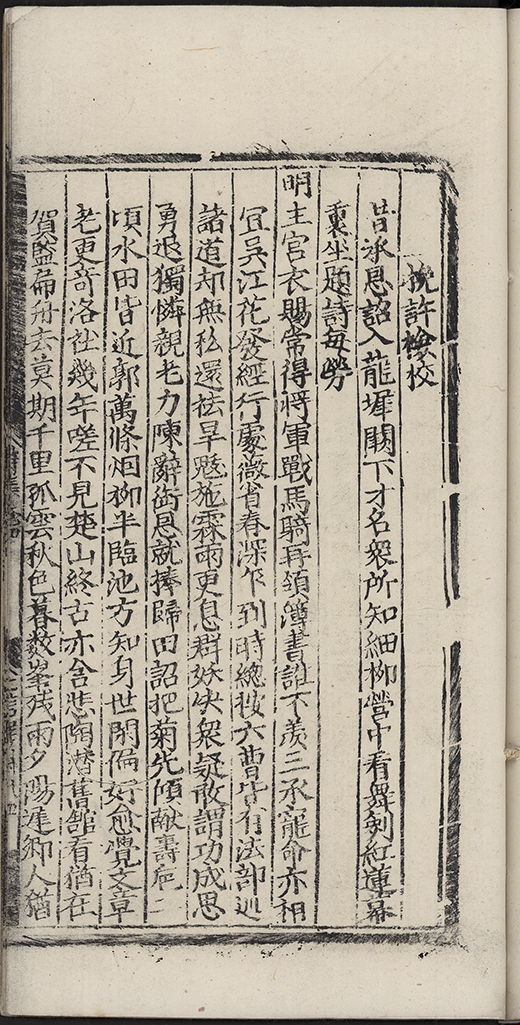 挽許檢校
昔承恩詔入龍墀闕下才名衆所知細柳營中看舞劍紅蓮幕
裏坐題詩每勞
明主官衣賜常得將軍戰馬騎再領簿書誰不羨三承寵命亦相
宜吳江花發經行處薇省春深乍到時總按六曹皆有法部巡
諸道却無私還祛旱魃施霖雨更息群妖決衆疑敢謂功成思
勇退獨憐親老力陳辭銜恩就捧歸田詔把菊先傾献壽巵二
頃水田皆近郭萬條烟柳半臨池方知身世閑偏好愈覺文章
老更奇洛社幾年嗟不見楚山終古亦含悲陶潜舊舘看猶在
賀監扁舟去莫期千里孤雲秋色暮数峯残雨夕陽遲鄉人猶